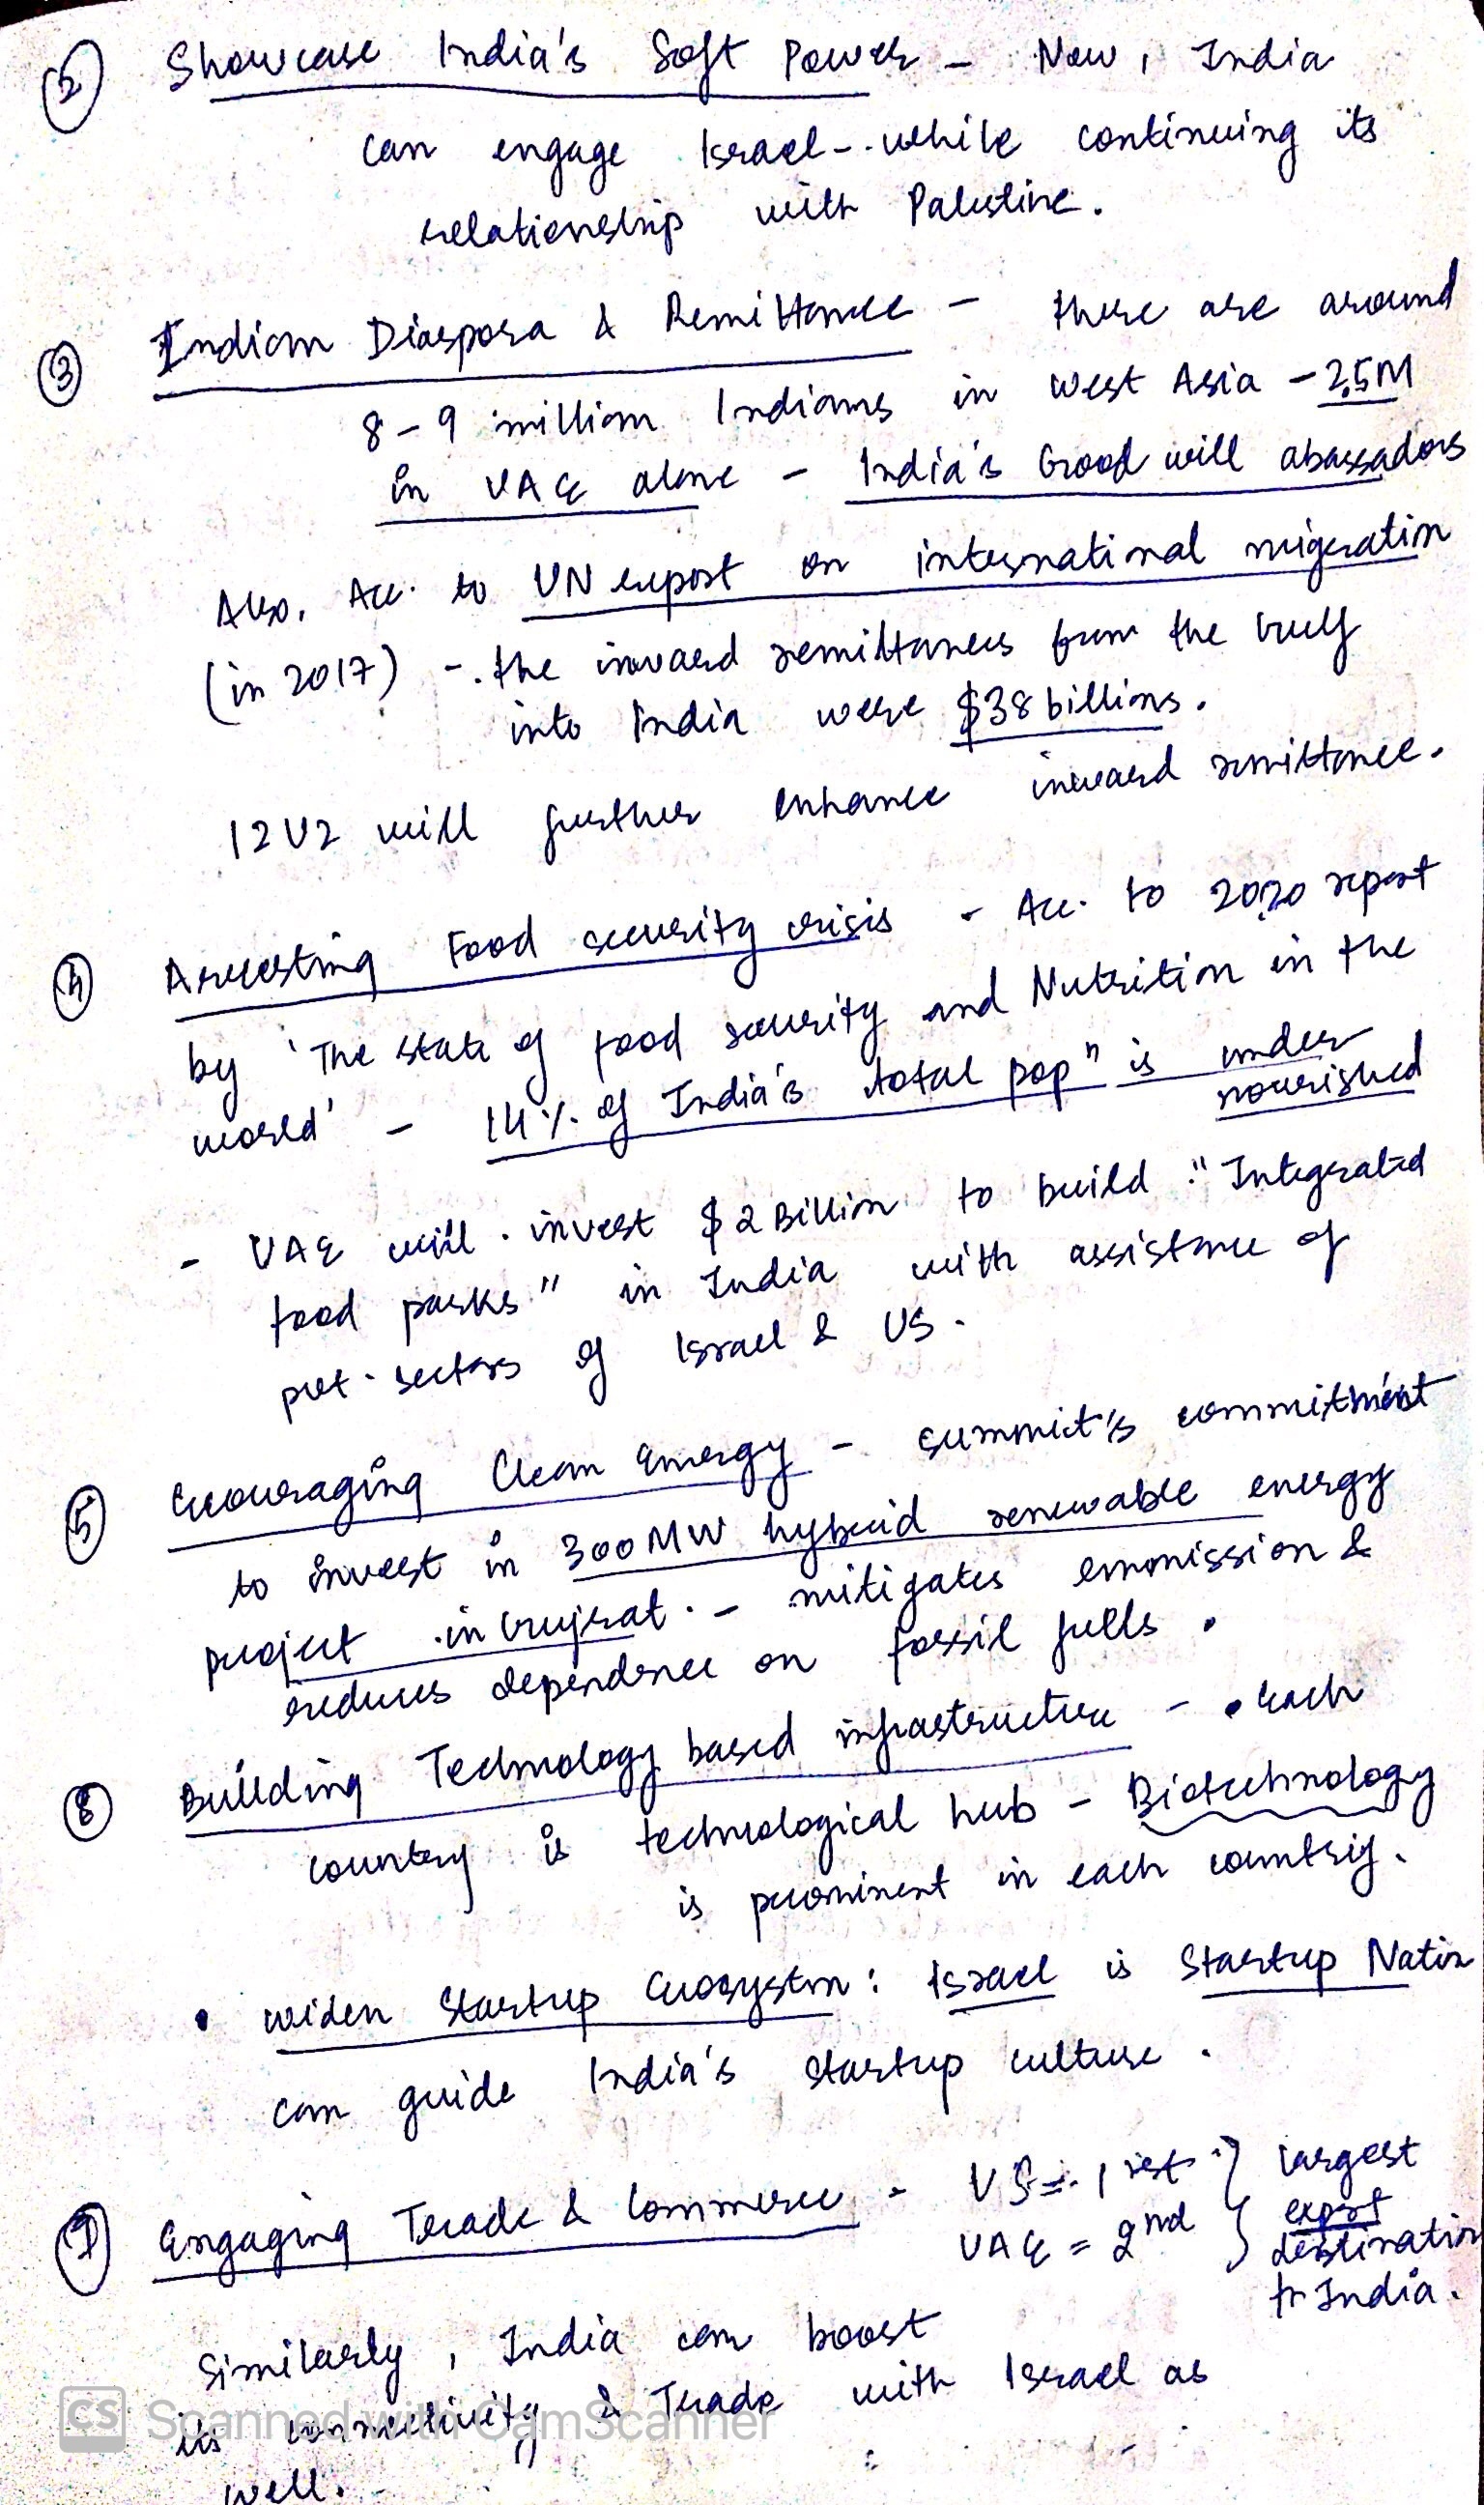 ② Showcase India's Soft Power - Now, India
can engage Israel - while continuing its
relationship with Palestine.
③ Indian Diaspora & Remittance - there are around
8-9 million Indians in West Asia - 2.5M
in UAE alone - India's Good will abassadors
Also, Acc. to UN report on international migration
(in 2017) - the inward remittances from the Gulf
into India were $38 billions.
I2U2 will further enhance inward remittance.
④ Arresting Food security crisis - Acc. to 2020 report
by 'The state of food security and Nutrition in the
world' - 14% of India's total popⁿ is under
nourished
- UAE will invest $2 Billion to build "Integrated
food parks" in India with assistance of
pvt. sectors of Israel & US.
⑤ Encouraging Clean Energy - summit's commitment
to invest in 300MW hybrid renewable energy
project in Gujrat. - mitigates emmission &
reduces dependence on fossil fulls.
⑧ Building Technology based infrastructure - • Each
country is technological hub - Biotechnology
is prominent in each country.
• widen Startup Ecosystm: Israel is Startup Nation
can guide India's startup culture.
⑨ Engaging Trade & Commerce - US = 1rst } largest
UAE = 2nd } export
destination
fr India.
Similarly, India can boost
its connectivity & Trade with Israel as
well.
CS Scanned with CamScanner